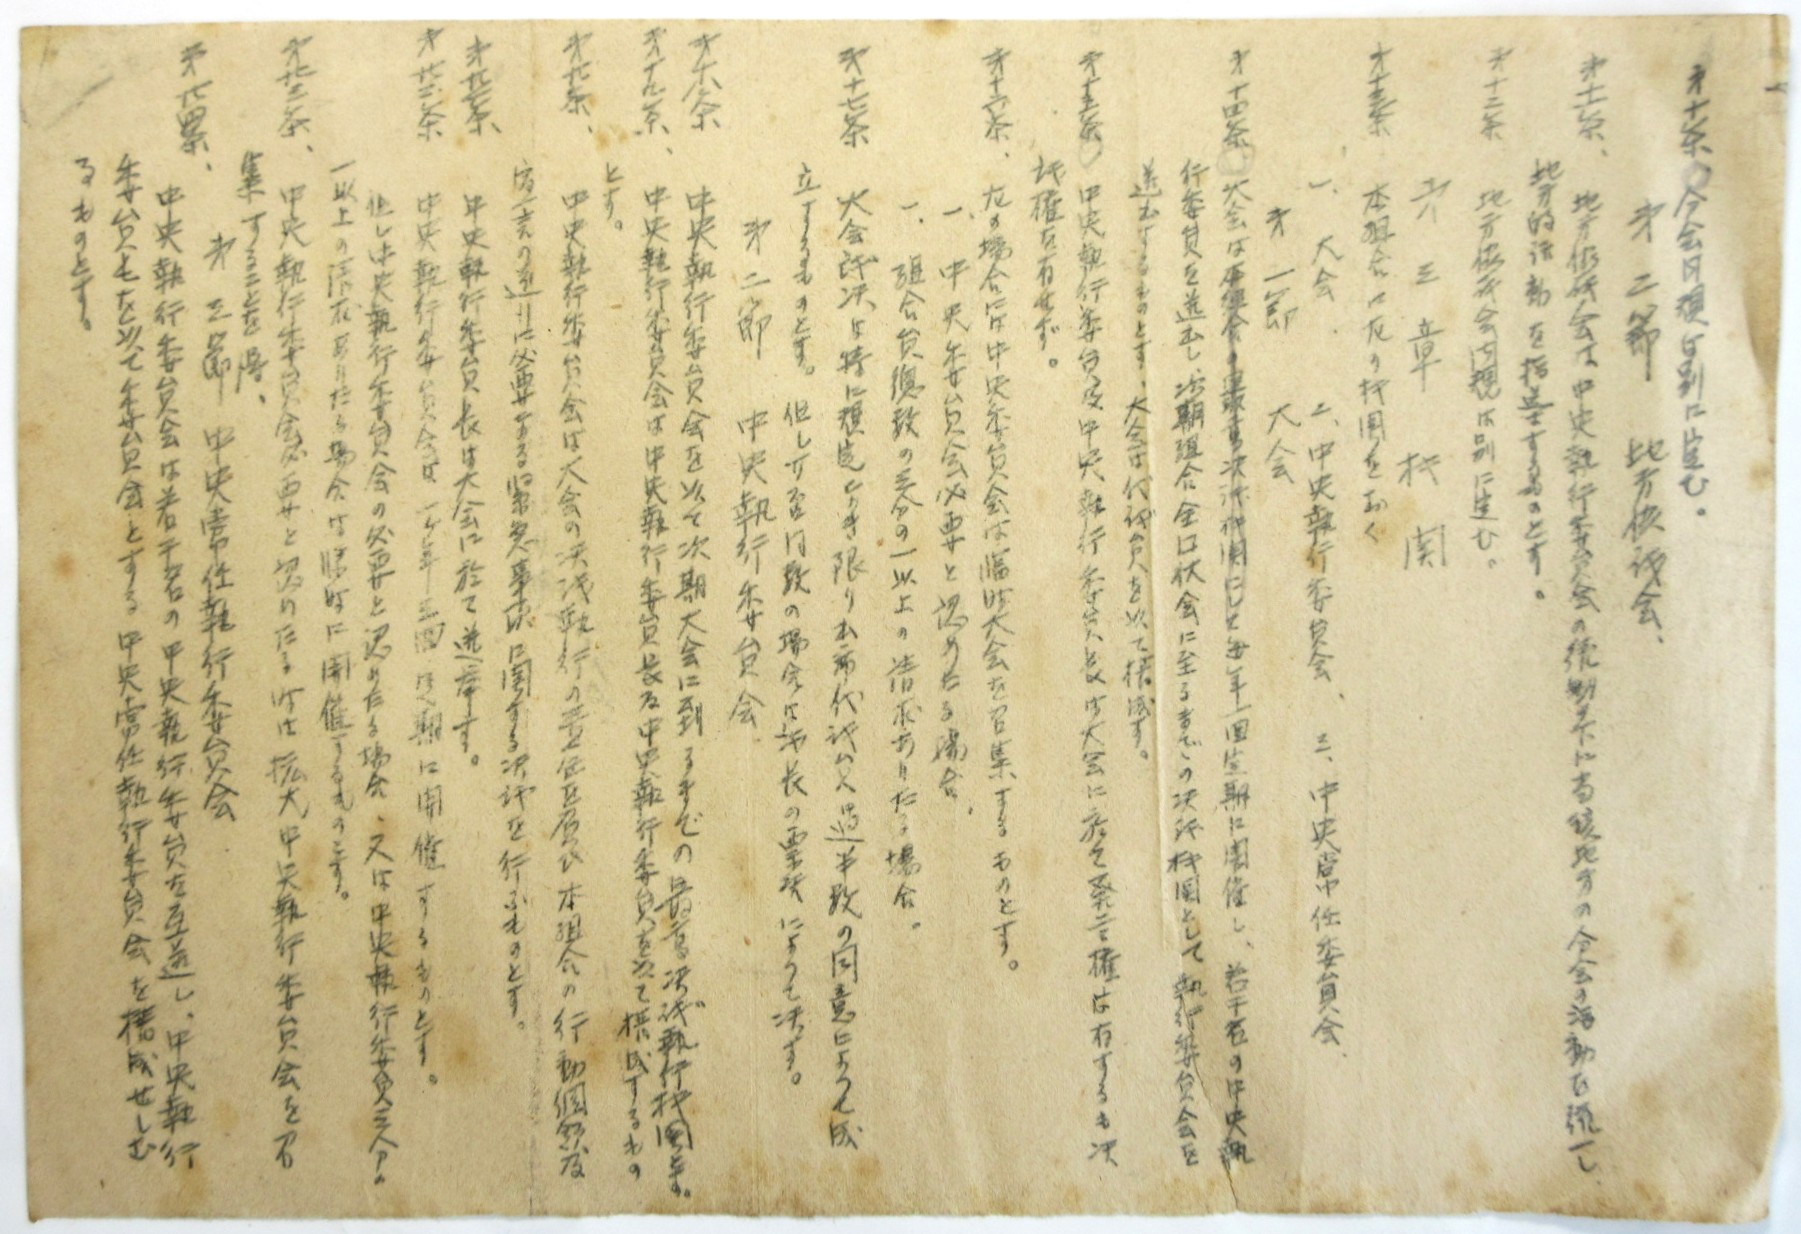 第十条、分会内規は別に定む。
第二節 地方協議会、
第十一条、地方協議会は中央執行委員会の統制下に当該地方の分会の活動を統一し
地方的活動を指導するものとす。
第十二条 地方協議会内規は別に定む。
第三章 机関
第十三条 本組合に左の机関をおく
一、大会、 二、中央執行委員会、 三、中央常任委員会、
第一節 大会
第十四条、大会は本組合の最高決議机関にして毎年一回定期に開催し、若干名の中央執
行委員を選出し、次期組合全国大会に至るまでの決議机関として執行委員会を
選出するものとす、大会は代議員を以て構成す。
第十五条、中央執行委員及中央執行委員長は大会に於て発言権は有するも決
議権を有せず。
第十六条、左の場合には中央委員会は臨時大会を召集するものとす。
一、中央委員会必要と認めたる場合、
一、組合員総数の三分の一以上の請求ありたる場合。
第十七条 大会議決は特に規定なき限り出席代議員過半数の同意によつて成
立するものとす。但し可否同数の場合は議長の票決によつて決す。
第二節 中央執行委員会
第十八条 中央執行委員会を以て次期大会に到るまでの最高決議執行机関とす。
第十九条、中央執行委員会は中央執行委員長及中央執行委員を以て構成するもの
とす。
第廿条、中央執行委員会は大会の決議執行の責任を負ひ本組合の行動綱領及
宣言の遂行に必要なる緊急事項に関する決議を行ふものとす。
第廿一条 中央執行委員長は大会に於て選挙す。
第廿二条 中央執行委員会は一ケ年三回定期に開催するものとす。
但し中央執行委員会の必要と認めたる場合、又は中央執行委員三分の
一以上の請求ありたる場合は臨時に開催するものとす。
第廿三条、中央執行委員会必要と認めたる時は拡大中央執行委員会を召
集することを得、
第三節 中央常任執行委員会
第廿四条、中央執行委員会は若干名の中央執行委員を互選し、中央執行
委員長を以て委員会とする中央常任執行委員会を構成せしむ
るものとす。